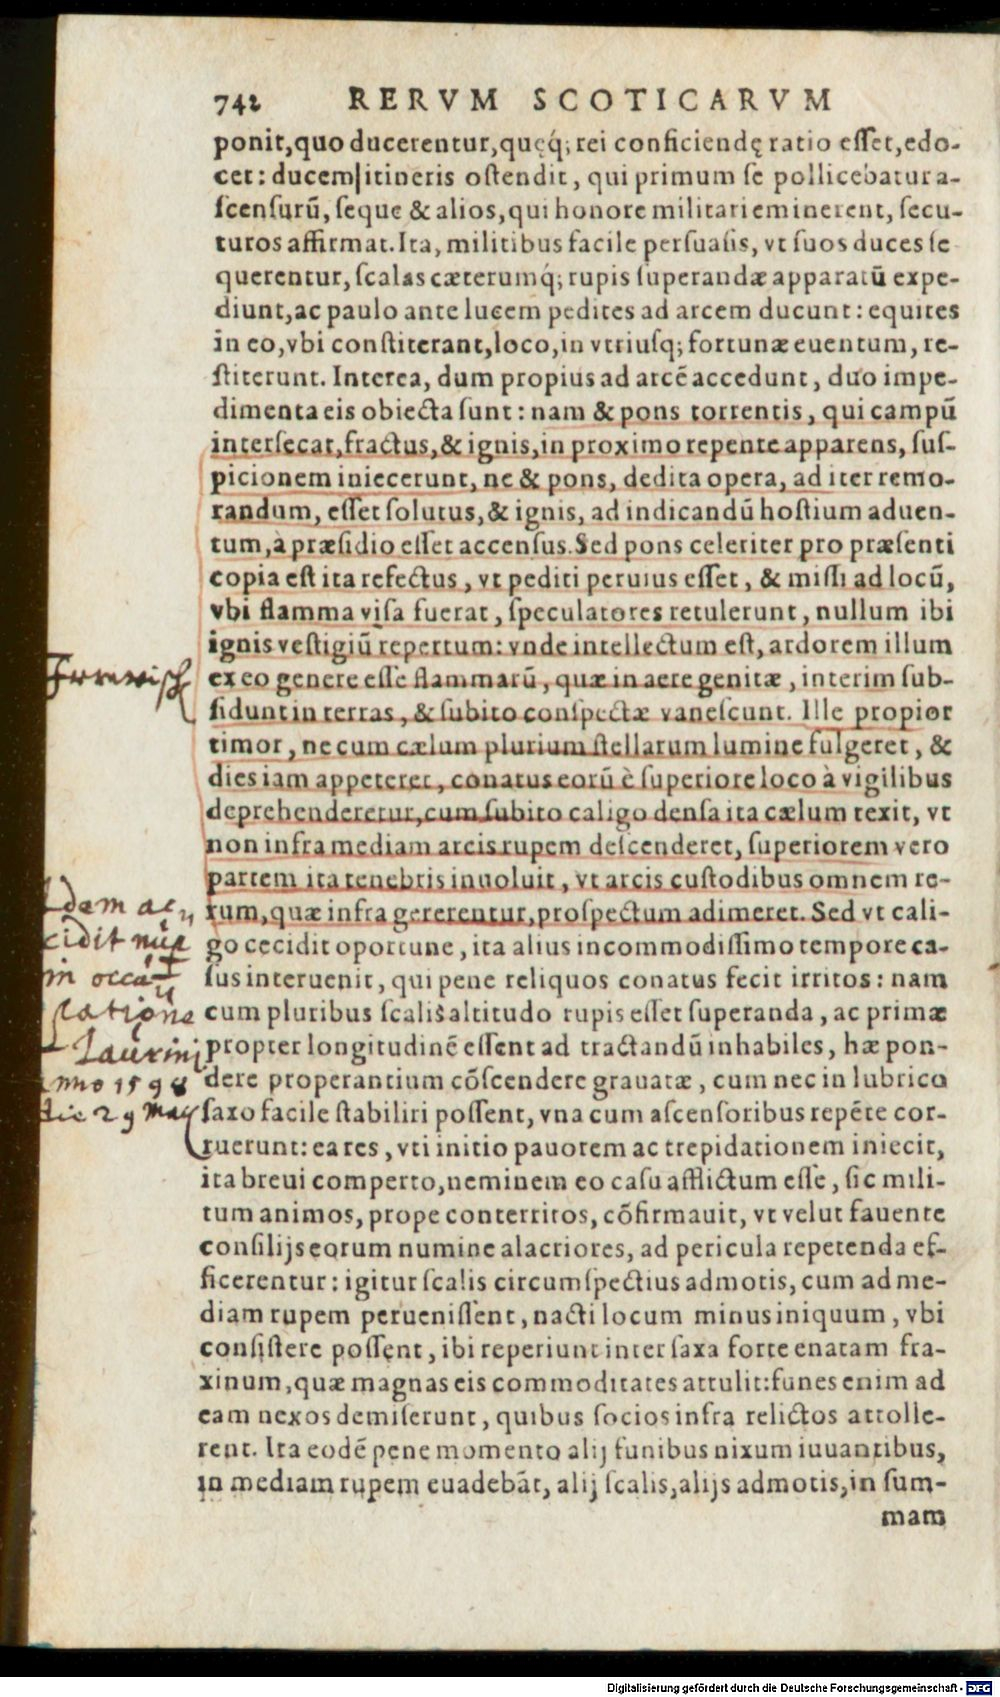 742 RERVM SCOTICARVM
ponit, quo ducerentur, quęq́; rei conficiendę ratio eſſet, edo-
cet: ducem itineris oſtendit, qui primum ſe pollicebatur a-
ſcenſurū, ſeque & alios, qui honore militari eminerent, ſecu-
turos affirmat. Ita, militibus facile perſuaſis, vt ſuos duces ſe
querentur, ſcalas cæterumq́; rupis ſuperandæ apparatū expe-
diunt, ac paulo ante lucem pedites ad arcem ducunt: equites
in eo, vbi conſtiterant, loco, in vtriuſq; fortunæ euentum, re-
ſtiterunt. Interea, dum propius ad arcē accedunt, duo impe-
dimenta eis obiecta ſunt: nam & pons torrentis, qui campū
interſecat, fractus, & ignis, in proximo repente apparens, ſuſ-
picionem iniecerunt, ne & pons, dedita opera, ad iter remo-
randum, eſſet ſolutus, & ignis, ad indicandū hoſtium aduen-
tum, à præſidio eſſet accenſus. Sed pons celeriter pro præſenti
copia eſt ita refectus, vt pediti peruius eſſet, & miſſi ad locū,
vbi flamma viſa fuerat, ſpeculatores retulerunt, nullum ibi
ignis veſtigiū repertum: vnde intellectum eſt, ardorem illum
ex eo genere eſſe flammarū, quæ in aere genitæ, interim ſub-
ſidunt in terras, & ſubito conſpectæ vaneſcunt. Ille propior
timor, ne cum cælum plurium ſtellarum lumine fulgeret, &
dies iam appeteret, conatus eorū è ſuperiore loco à vigilibus
deprehenderetur, cum ſubito caligo denſa ita cælum texit, vt
non infra mediam arcis rupem deſcenderet, ſuperiorem vero
partem ita tenebris inuoluit, vt arcis cuſtodibus omnem re-
rum, quæ infra gererentur, proſpectum adimeret. Sed vt cali-
go cecidit oportune, ita alius incommodiſſimo tempore ca-
ſus interuenit, qui pene reliquos conatus fecit irritos: nam
cum pluribus ſcalis altitudo rupis eſſet ſuperanda, ac primæ
propter longitudinē eſſent ad tractandū inhabiles, hæ pon-
dere properantium cōſcendere grauatæ, cum nec in lubrico
ſaxo facile ſtabiliri poſſent, vna cum aſcenſoribus repēte cor-
ruerunt: ea res, vti initio pauorem ac trepidationem iniecit,
ita breui comperto, neminem eo caſu afflictum eſſe, ſic mili-
tum animos, prope conterritos, cōfirmauit, vt velut fauente
conſilijs eorum numine alacriores, ad pericula repetenda ef-
ficerentur: igitur ſcalis circumſpectius admotis, cum ad me-
diam rupem perueniſſent, nacti locum minus iniquum, vbi
conſiſtere poſſent, ibi reperiunt inter ſaxa forte enatam fra-
xinum, quæ magnas eis commoditates attulit: funes enim ad
eam nexos demiſerunt, quibus ſocios infra relictos attolle-
rent. Ita eodē pene momento alij funibus nixum iuuantibus,
in mediam rupem euadebāt, alij ſcalis, alijs admotis, in ſum-
mam
Idem ac
cidit
in
Taurini
anno 1598
die 29
Digitalisierung gefördert durch die Deutsche Forschungsgemeinschaft - DFG